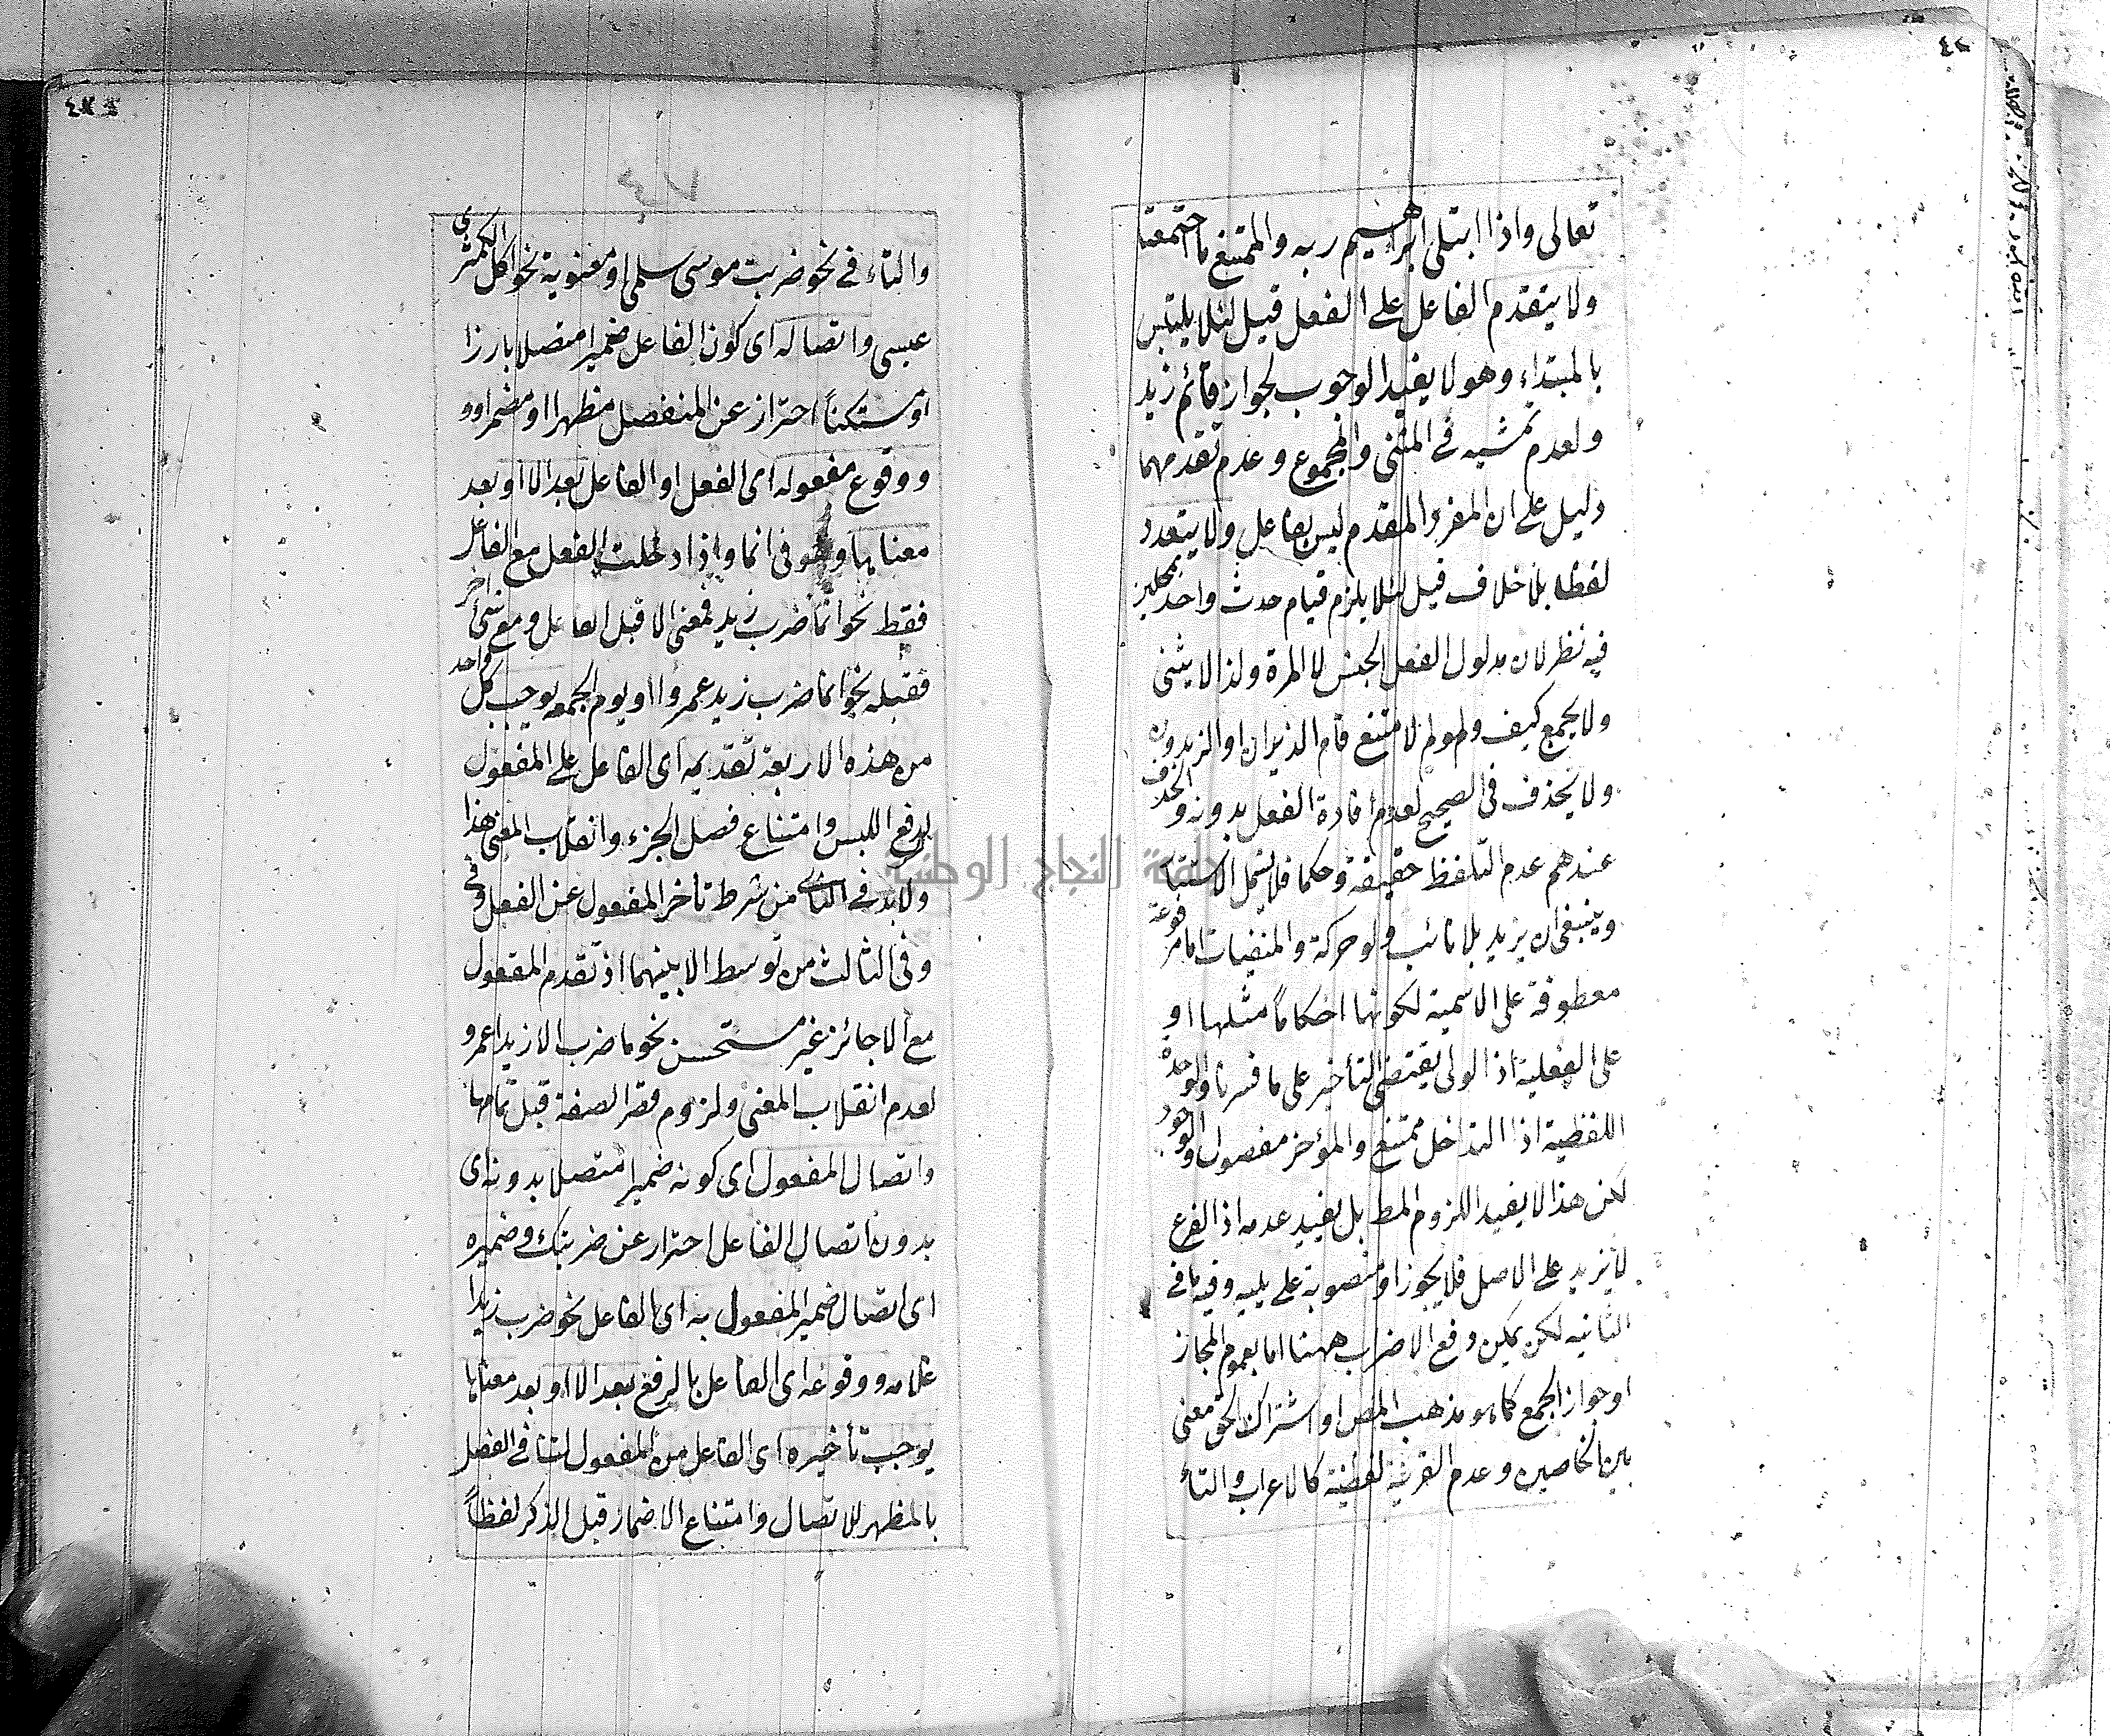 ٤٢
تعالى واذا ابتلى ابراهيم ربه والممتنع ما اجتمعتا
ولا يتقدم الفاعل على الفعل قيل لئلا يلتبس
بالمبتداء وهو لا يفيد الوجوب لجواز قائم زيد
ولعدم تمشيه في المثنى والمجموع وعدم تقدمهما
دليل على ان المفرد المقدم ليس بفاعل ولا يتعدد
لفظا بلا خلاف قيل لئلا يلزم قيام حدث واحد بمحلين
فيه نظر لان مدلول الفعل الجنس لا المرة ولذا لا يثنى
ولا يجمع كيف ولو لم لامتنع قام الزيدان او الزيدون
ولا يحذف في الصحيح لعدم افادة الفعل بدونه والحذف
عندهم عدم التلفظ حقيقة وحكما فلا يشمل الاستتار
وينبغي ان يزيد بلا نائب ولو حركة والمنفيات اما مرفوعة
معطوفة على الاسمية لكونها احكاماً مثلها او
على الفعلية اذ الولى يقتضى التأخير على ما فسرنا والوحدة
اللفظية اذا التداخل ممتنع والمؤخر مفصول والوجود
لكن هذا لا يفيد اللزوم المط بل يفيد عدمه اذ الفرع
لا يزيد على الاصل فلا يجوز او منصوبة على يليه وفيه ما في
الثانيه لكن يمكن دفع الاضراب ههنا اما بعموم المجاز
او جواز الجمع كما هو مذهب المص او اشتراك الحق معنى
بين الخاصين وعدم القرينة لفظية كالاعراب والتأ
والتاء في نحو ضربت موسى سلمى او معنوية نحو اكل الكمثرى
عيسى واتصاله اى كون الفاعل ضميرا متصلا بارزا
او مستكناً احتراز عن المنفصل مظهرا او مضمرا و
ووقوع مفعوله اى الفعل او الفاعل بعد الا او بعد
معناها وهو فى انما واذا دخلت الفعل مع الفاعل
فقط نحو انما ضرب زيد فمعنى الا قبل الفاعل ومع شئ اخر
فقبله نحو انما ضرب زيد عمروا او يوم الجمعه يوجب كل واحد
من هذه الاربعة تقديمه اى الفاعل على المفعول
لدفع اللبس وامتناع فصل الجزء وانقلاب المعنى هذا
ولا بد في الثانى من شرط تأخر المفعول عن الفعل
وفى الثالث من توسط الا بينهما اذ تقدم المفعول
مع الا جائز غير مستحسن نحو ما ضرب الا زيدا عمرو
لعدم انقلاب المعنى ولزوم قصر الصفة قبل تمامها
واتصال المفعول اى كونه ضميرا متصلا بدونه اى
بدون اتصال الفاعل احتراز عن ضربتك وضميره
اى اتصال ضمير المفعول به اى الفاعل نحو ضرب زيدا
غلامه ووقوعه اى الفاعل بالرفع بعد الا او بعد معناها
يوجب تأخيره اى الفاعل من المفعول لتنافي الفصل
بالمظهر للاتصال وامتناع الاضمار قبل الذكر لفظاً